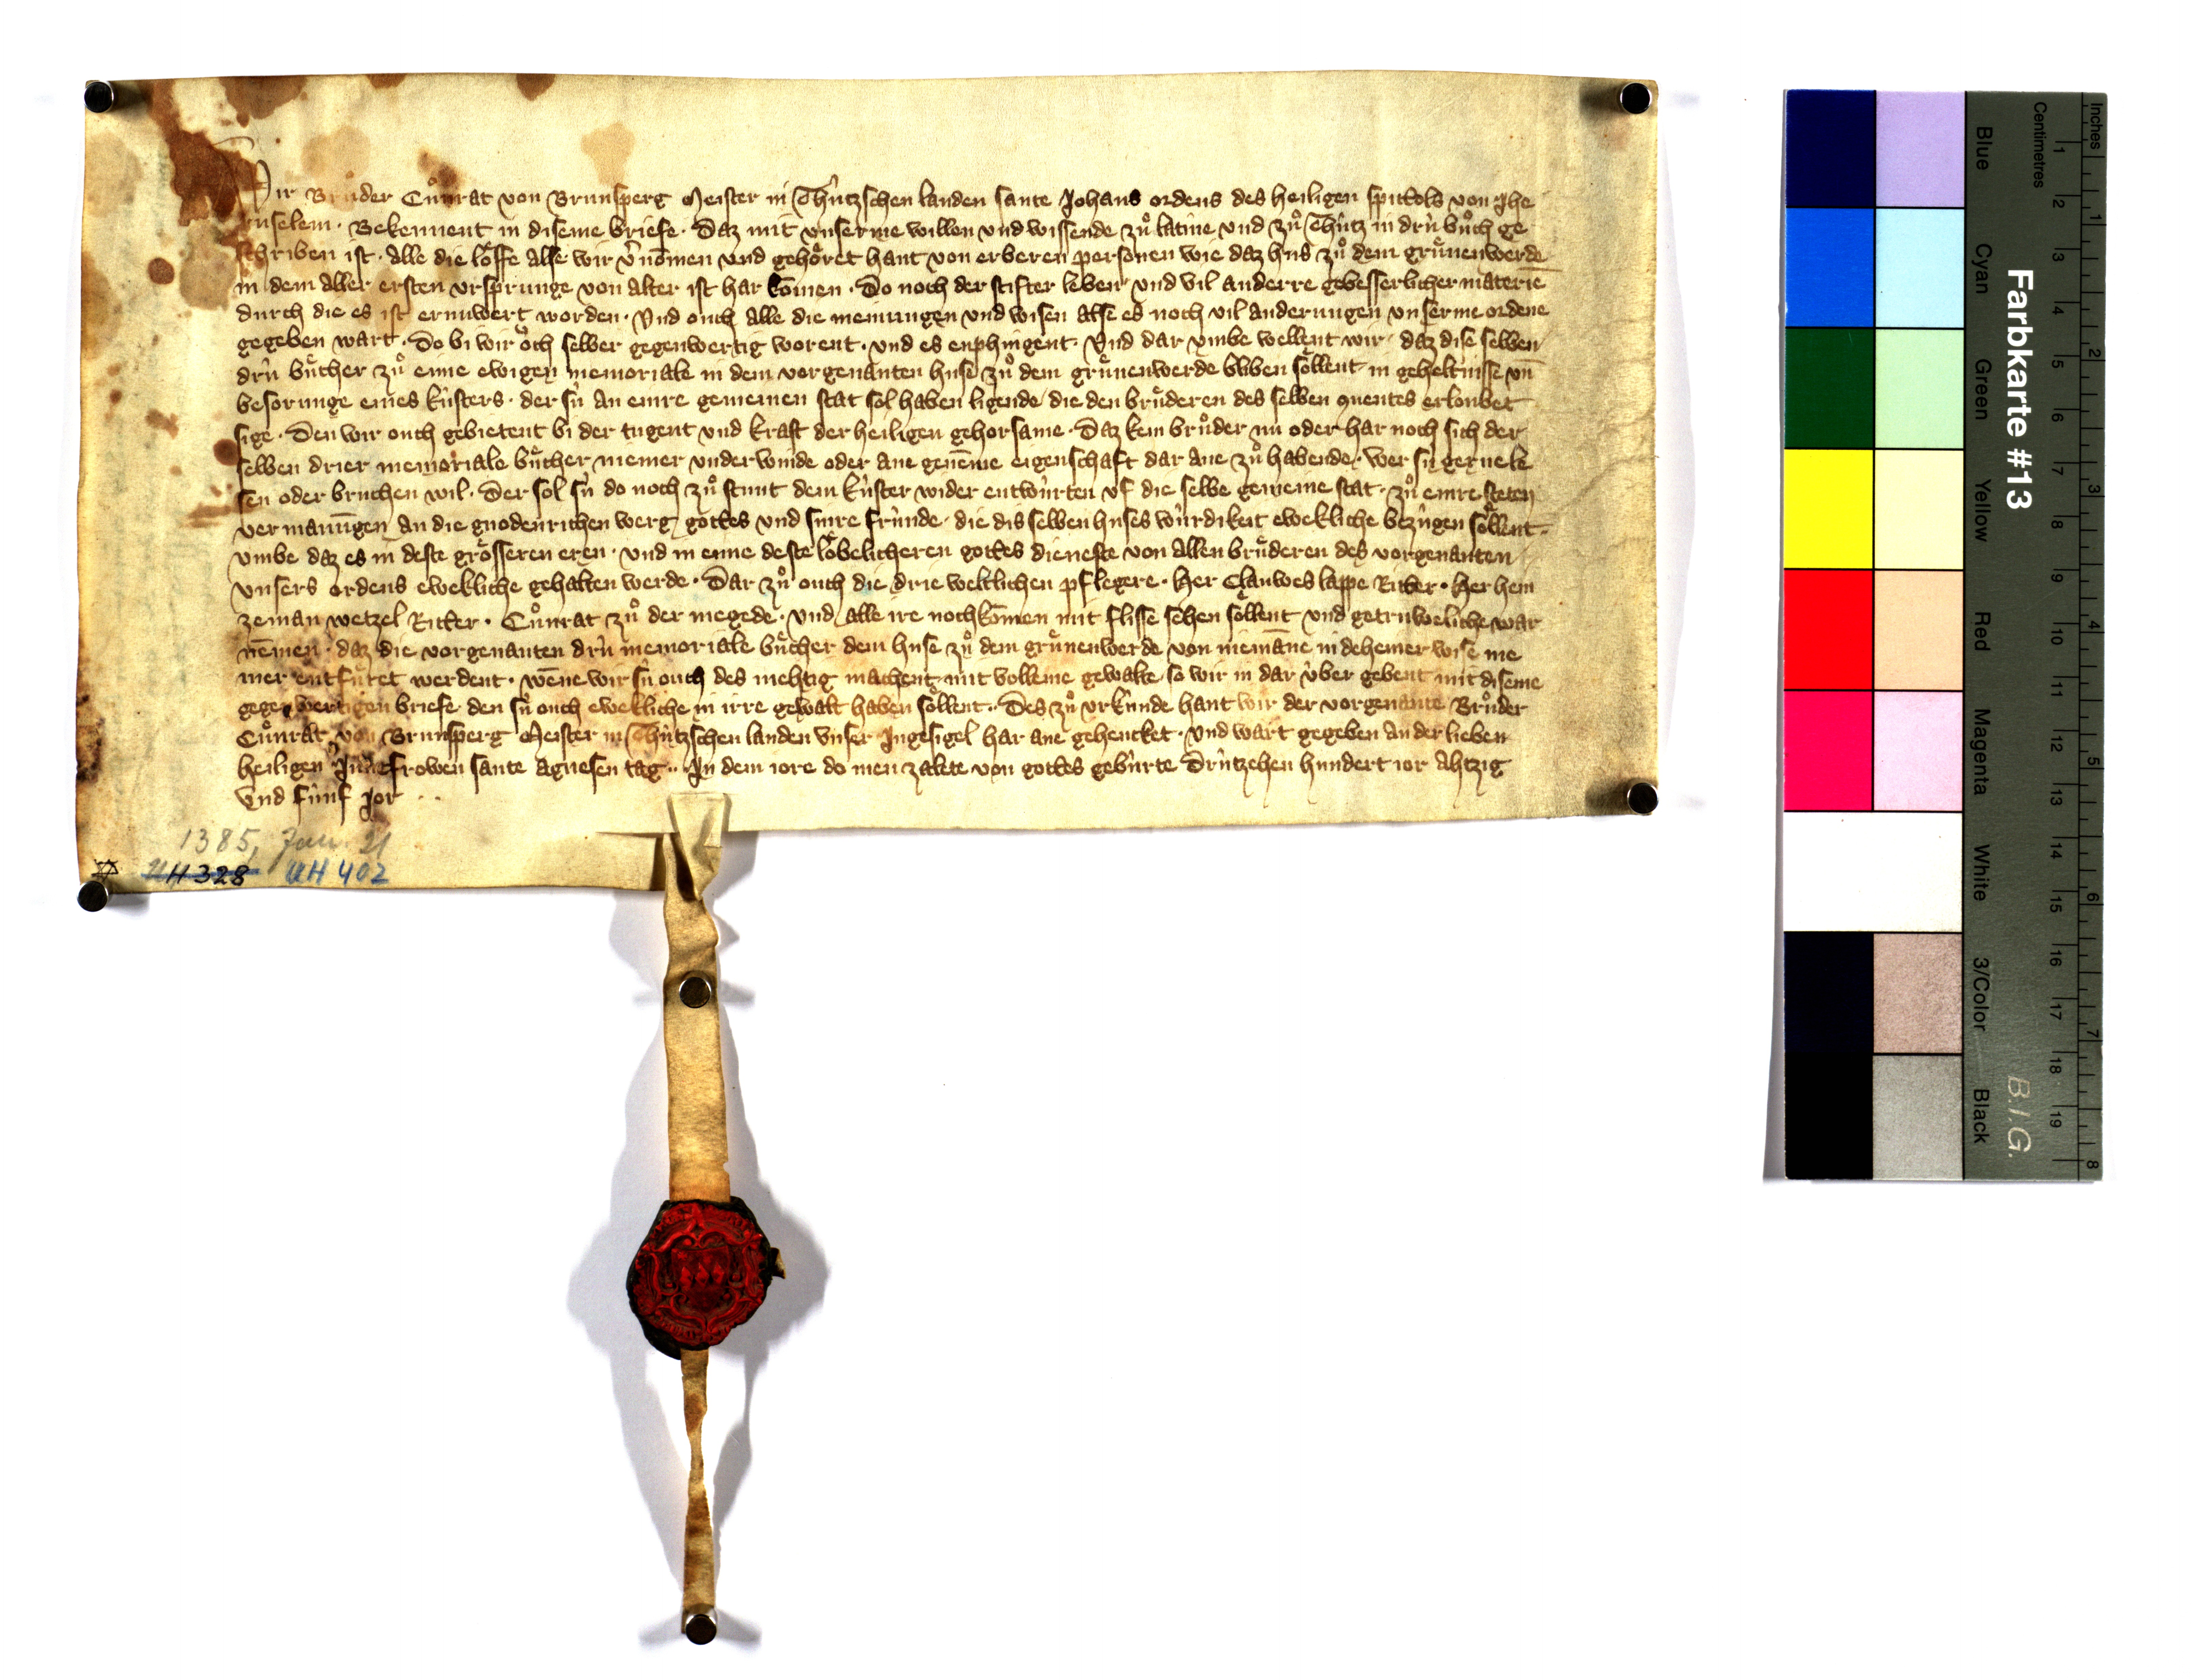 Wir Brůder Cůnrat von Brunsperg Meister in Thútzschen landen sante Johans ordens des heiligen spittols von Jhe
ruselem · Bekennent in diseme briefe · Daz mit unserme willen und wissende zů latine und zů Thútz in drú bůch ge
schriben ist · alle die lôffe alse wir v'nōmen und gehôret hant von erberen personen wie daz hus zů dem grûnenwerde
in dem aller ersten ursprunge von alter ist har kōmen · Do noch der stifter leben und vil anderre gebesserlicher materie
durch die es ist ernuwert worden · Und ouch alle die meinungen und wisen alse es noch vil anderungen unserme ordene
gegeben wart · Do bi wir ôch selber gegenwertig worent · und es enphingent · Und dar umbe wellent wir · daz dise selben
drú bûcher zů eime ewigen memoriale in dem vorgenanten huse zů dem grûnenwerde bliben sôllent in geheltnisse un̄
besorunge eines kústers · der sú an einre gemeinen stat sol haben ligende die den brûderen des selben conventes erloubet
sige · Den wir ouch gebietent bi der tugent und kraft der heiligen gehorsame · Daz kein brůder nu oder har noch sich der
selben drier memoriale bûcher niemer underwinde oder ane genēme eigenschaft dar ane zů habende · Wer sú geruche le
sen oder bruchen wil · Der sol sú do noch zů stunt dem kúster wider entwúrten uf die selbe gemeine stat · zů einre steten
vermanūngen an die gnodenrichen werg gottes und sinre frúnde · die dis selben huses wúrdikeit eweklliche bezúgen sôllent ·
umbe daz es in deste grôsseren eren · und in eime deste lôbelicheren gottes dieneste von allen brûderen des vorgenanten
unsers ordens ewekliche gehalten werde · Dar zů ouch die drie weltlichen pflegere · Her Clauwes lappe Ritter · Her hein
zeman wetzel Ritter · Cůnrat zů der megede · und alle ire nochkōmen mit flisse sehen sôllent und getruweliche war
nēmen · daz die vorgenanten drú memoriale bûcher dem huse zů dem grûnenwerde von niemāne in deheiner wise nie
mer entfûret werdent · wēne wir sú ouch des mehtig machent mit volleme gewalte so wir in dar úber gebent mit diseme
gegenwertigen briefe den sú ouch ewekliche in irre gewalt haben sôllent · Des zů urkúnde hant wir der vorgenante Brůder
Cůnrat von Brunsperg Meister in Thútzschen landen unser Ingesigel har ane gehencket · und wart gegeben an der lieben
heiligen Jungfrowen sante Agnesen tag · In dem iore do men zalete von gottes gebúrte Drútzehen hundert ior Ahtzig
und fúnf Jor · ·
1385, Jan. 21
H 328 UH 402
Farbkarte #13
B.I.G.
Inches 1 2 3 4 5 6 7 8
Centimetres 1 2 3 4 5 6 7 8 9 10 11 12 13 14 15 16 17 18 19
Blue Cyan Green Yellow Red Magenta White 3/Color Black